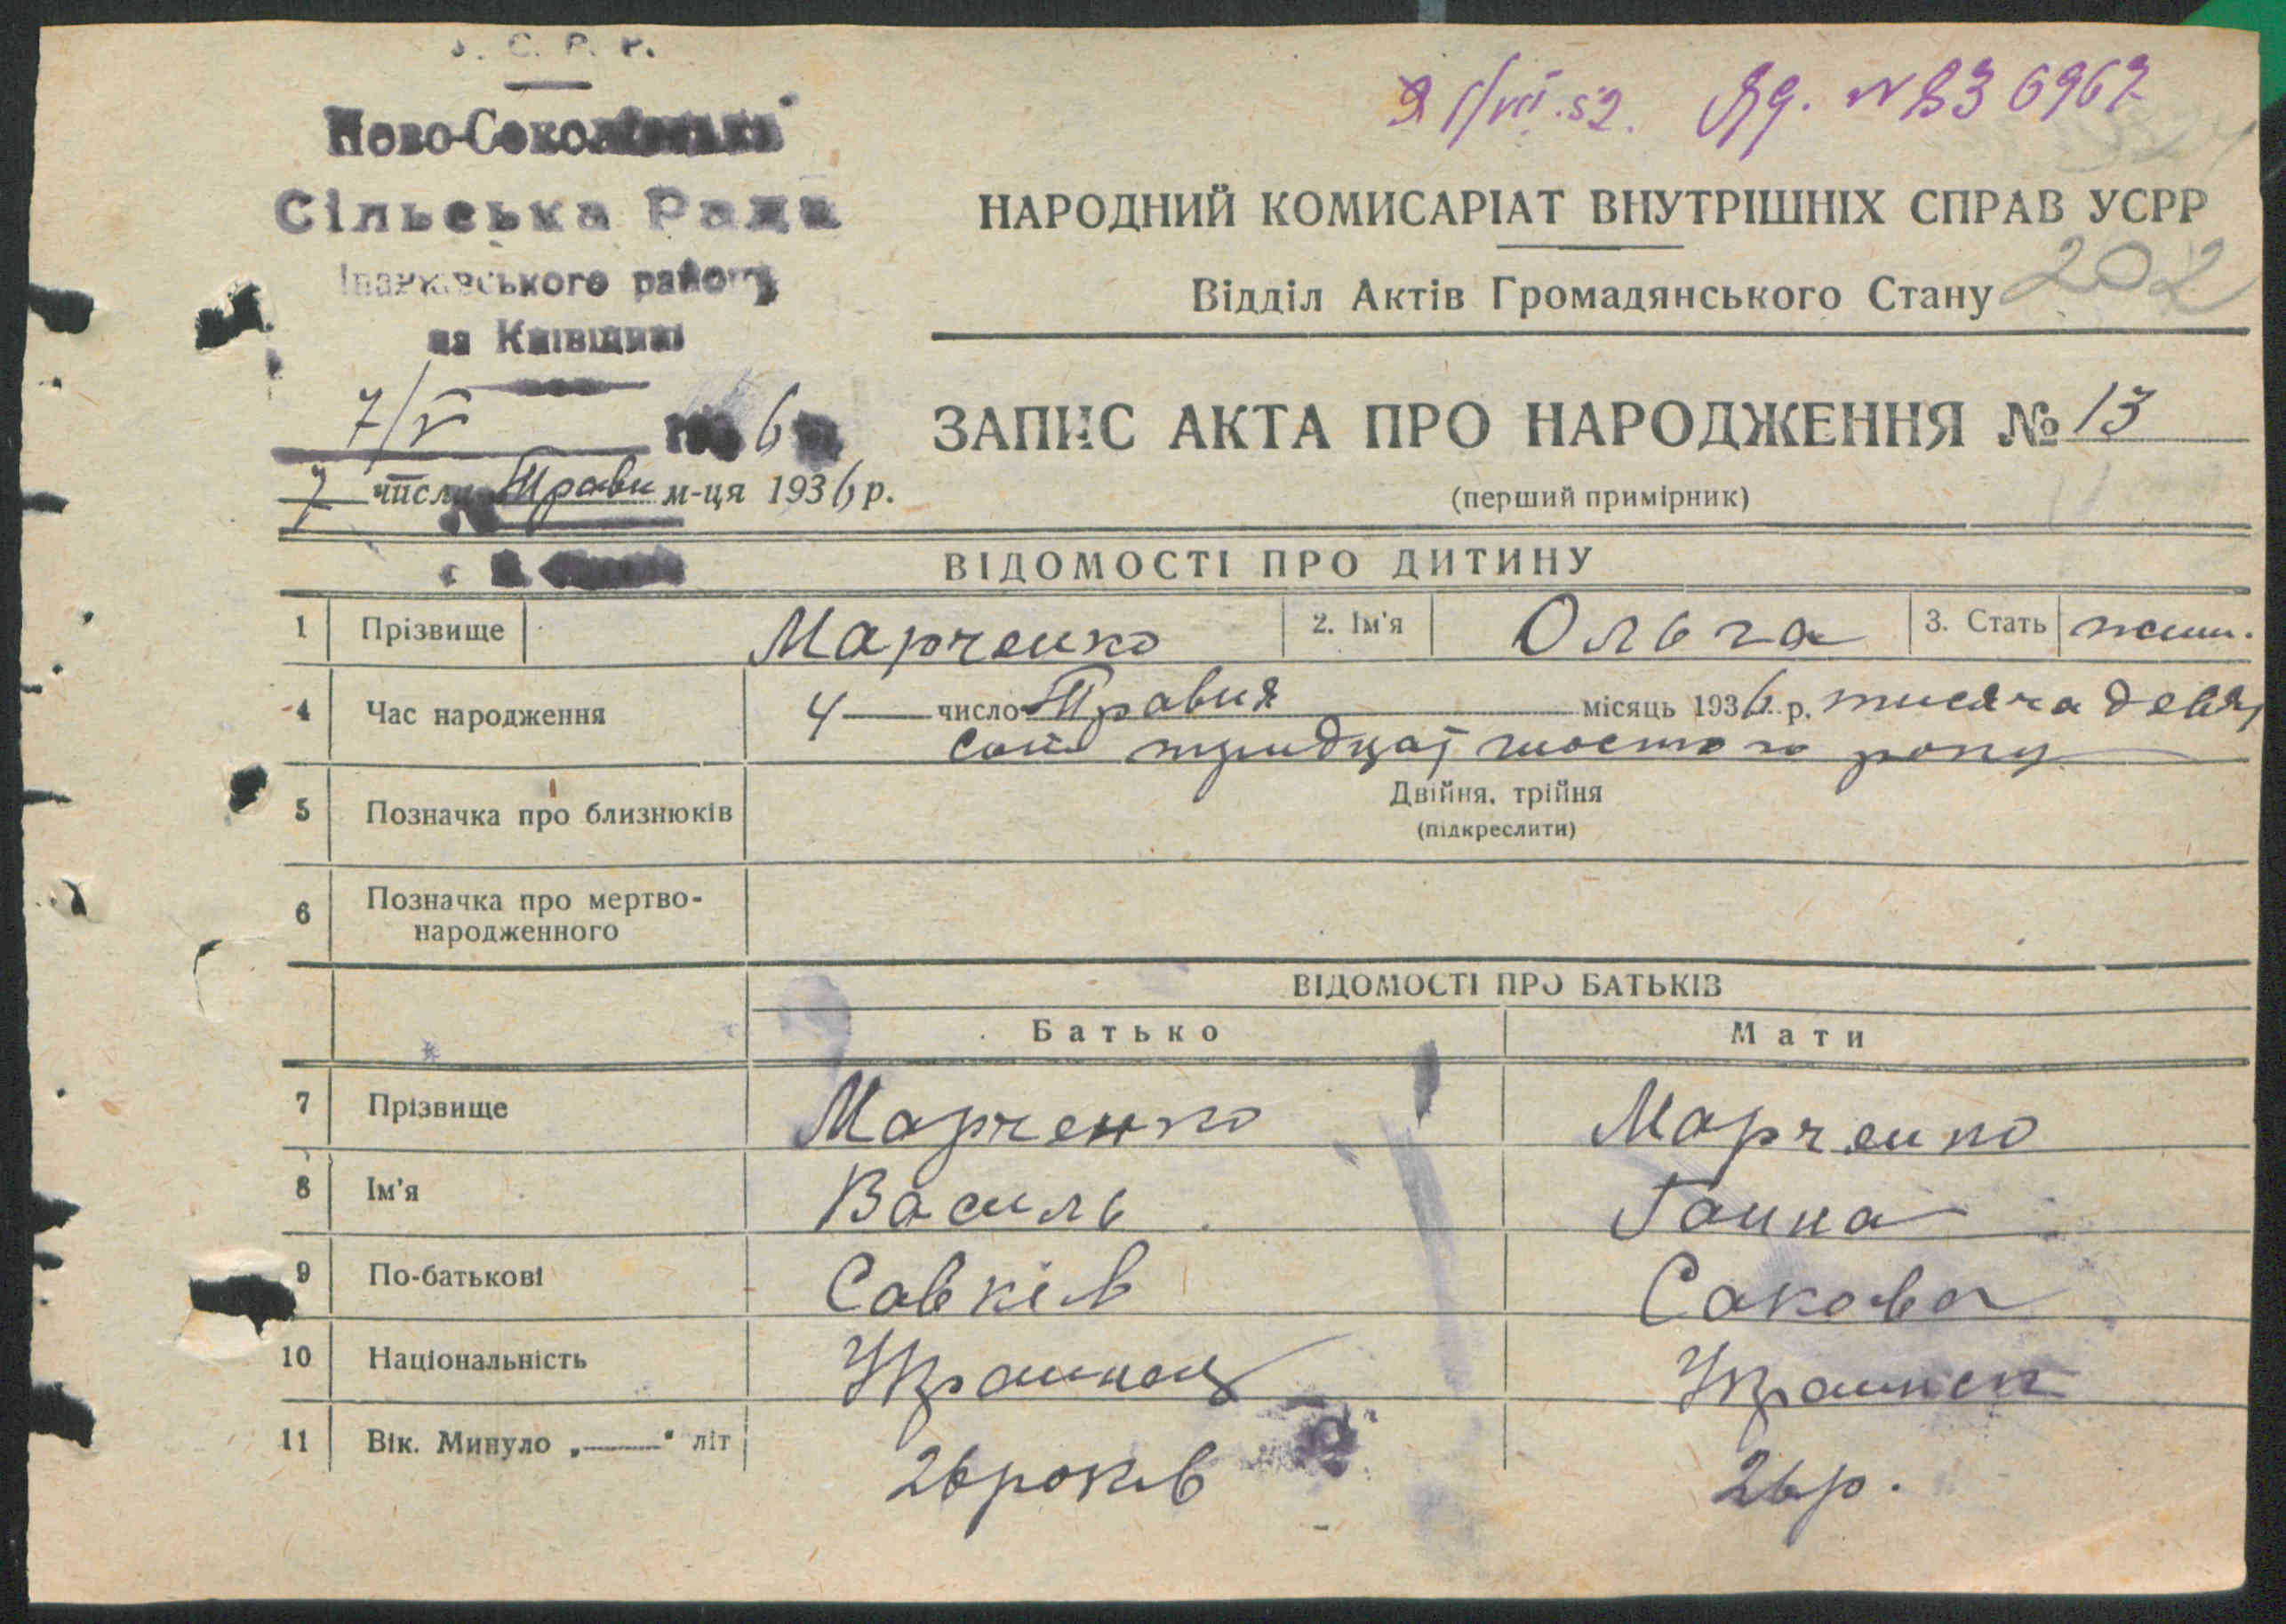 У. С. Р. Р.
Ново-Соколівська
Сільська Рада
Іванківського району
на Київщині
7/V 1936 р.
7 числа Травн м-ця 1936 р.
1/VII.52. ЯЯ. № 836967
НАРОДНИЙ КОМИСАРІАТ ВНУТРІШНІХ СПРАВ УСРР
Відділ Актів Громадянського Стану 202
ЗАПИС АКТА ПРО НАРОДЖЕННЯ № 13
(перший примірник)
ВІДОМОСТІ ПРО ДИТИНУ
1 Прізвище Марченко 2. Ім'я Ольга 3. Стать жін.
4 Час народження 4 число Травня місяць 1936 р. тисяча девят
сот тридцат шостого року
5 Позначка про близнюків Двійня, трійня
(підкреслити)
6 Позначка про мертво-
народженного
ВІДОМОСТІ ПРО БАТЬКІВ
Батько Мати
7 Прізвище Марченко Марченко
8 Ім'я Василь Ганна
9 По-батькові Савків Сакова
10 Національність Українец Українка
11 Вік. Минуло „——" літ 26 років 26 р.